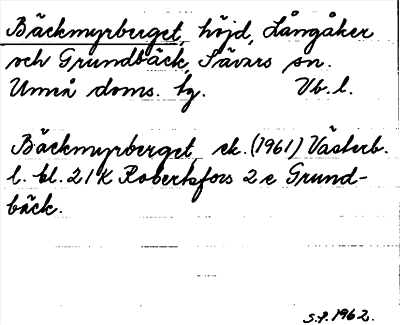 Bäckmyrberget, höjd, Långåker
och Grundbäck, Sävars sn.
Umeå doms. tg. Vb.l.
Bäckmyrberget ek. (1961) Västerb.
l. bl. 21K Robertsfors 2 e Grund-
bäck.
S.P. 1962.